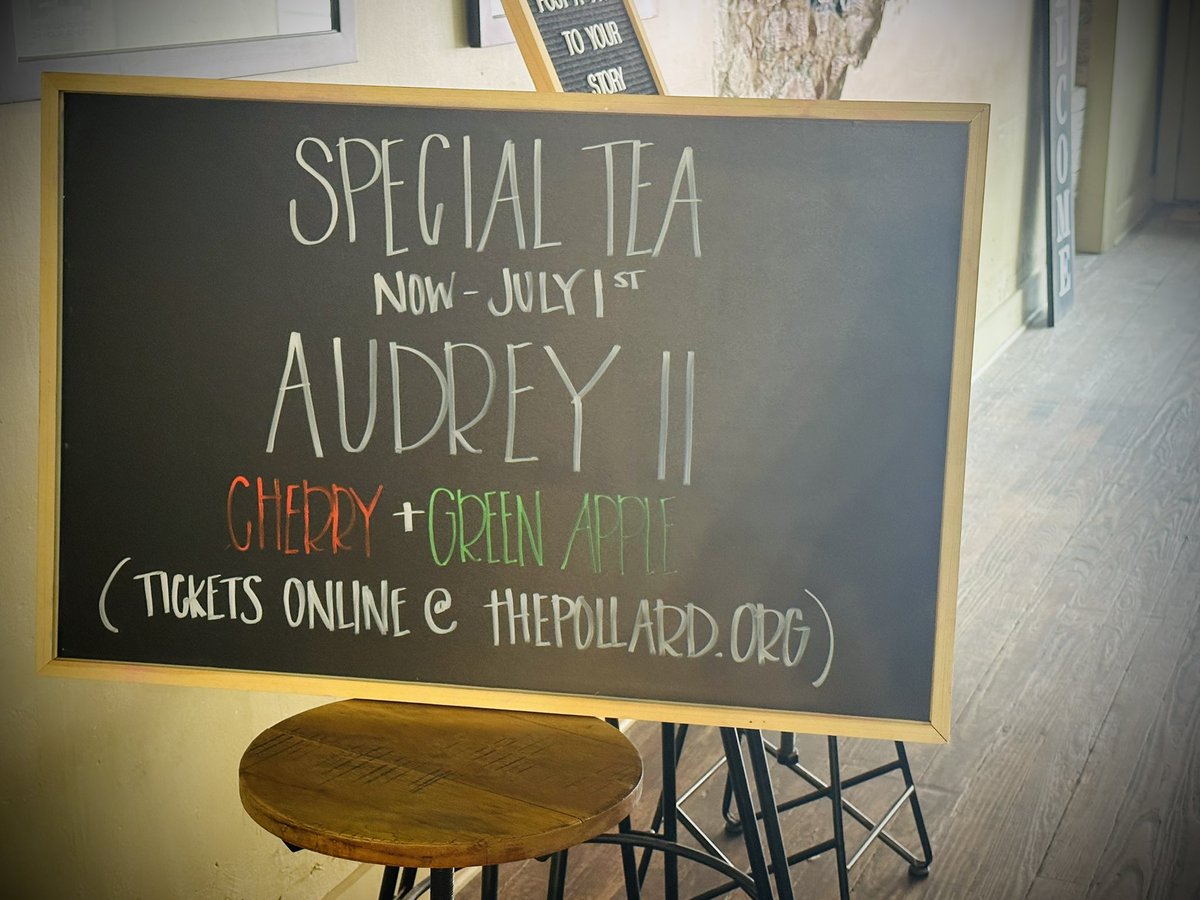 TO YOUR
STORY
SPECIAL TEA
NOW - JULY 1ST
AUDREY II
CHERRY + GREEN APPLE
(TICKETS ONLINE @ THEPOLLARD.ORG)
ECOME